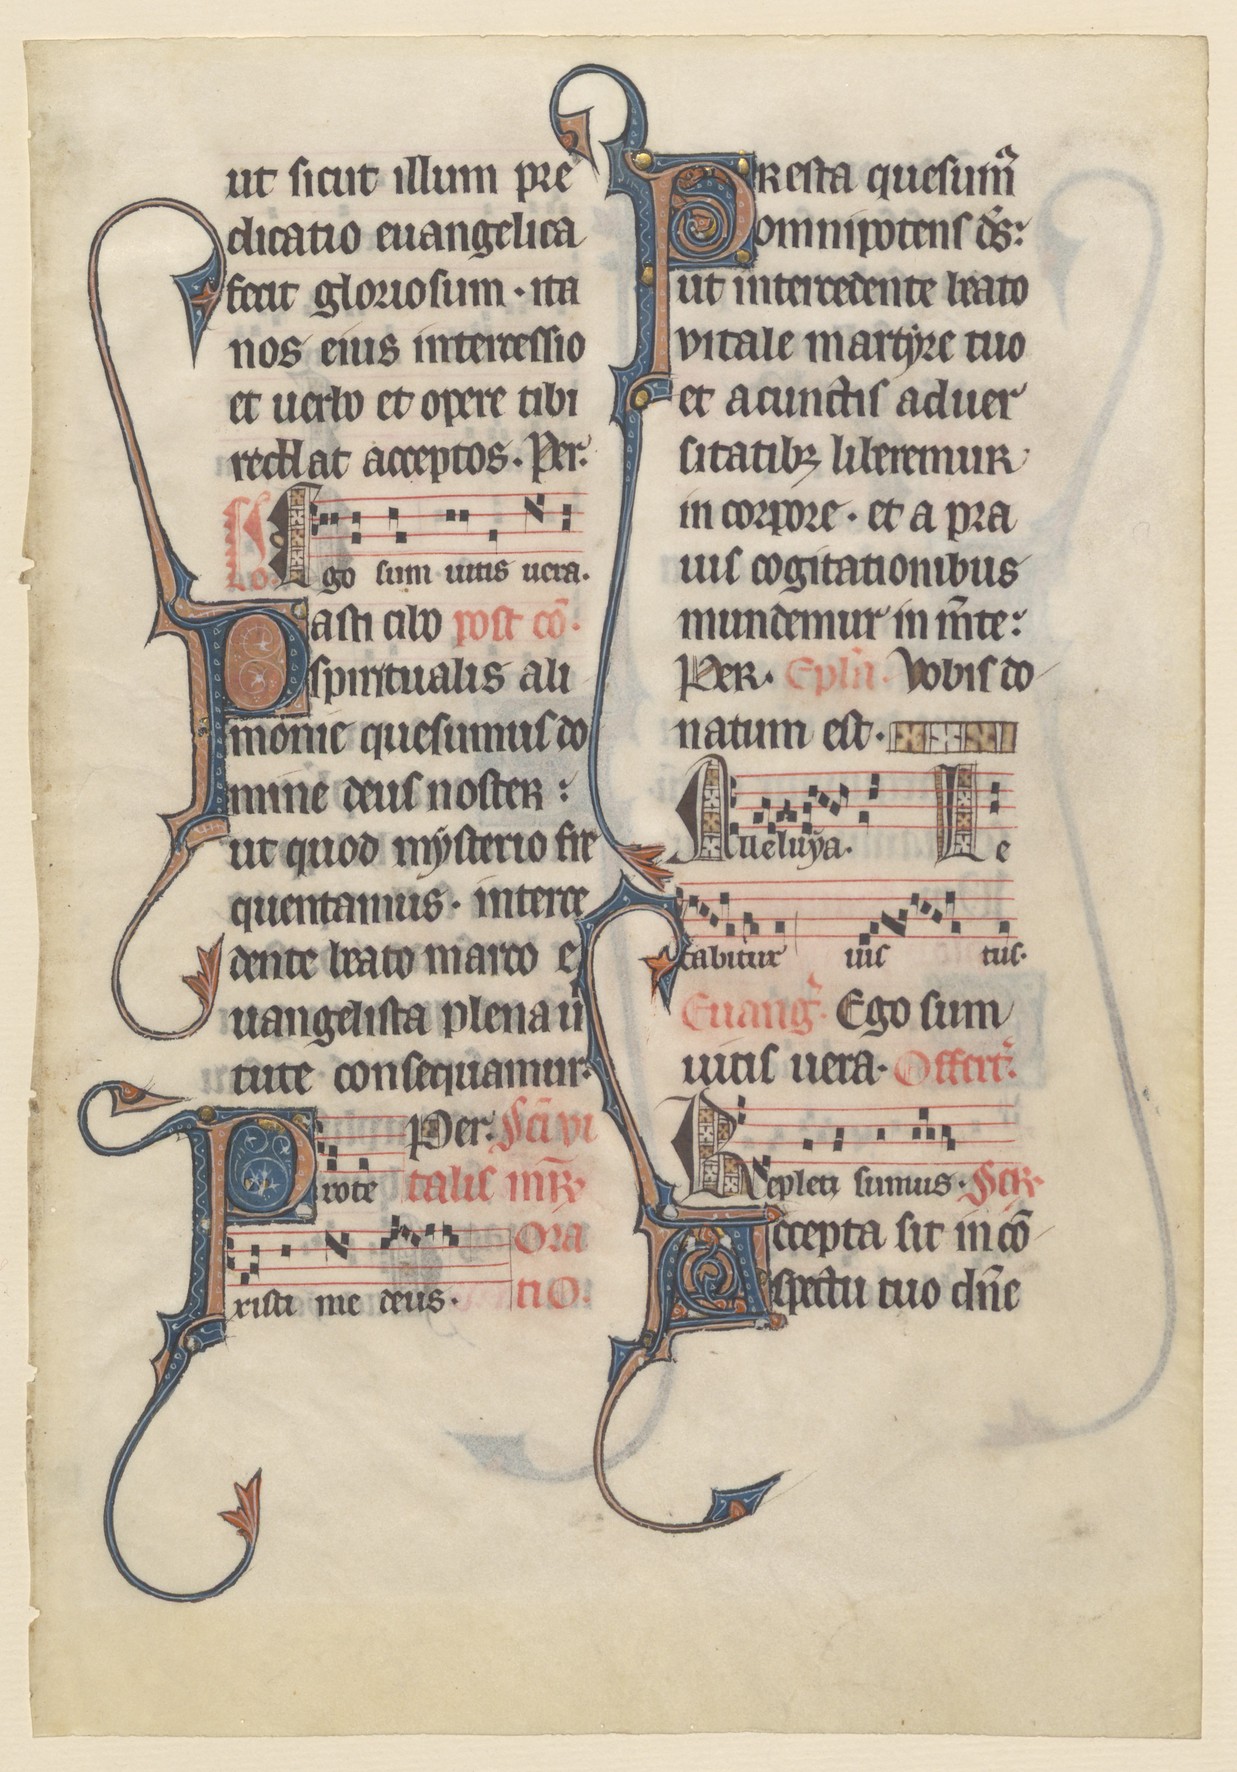 ut sicut illum pre
dicatio euangelica
fecit gloriosum · ita
nos eius intercessio
et uerbo et opere tibi
reddat acceptos. Per.
Co. Ego sum uitis uera.
Pasti cibo post cō.
spiritualis ali
monie quesumus do
mine deus noster :
ut quod mysterio fre
quentamus · interce
dente beato marco e
uangelista plena ui
tute consequamur.
Per. Sci vi
Prote talis mr̄is
Ora
xisti me deus. tio.
Presta quesum̄
omnipotens ds̄:
ut intercedente beato
vitale martyre tuo
et a cunctis aduer
sitatibꝫ liberemur
in corpore · et a pra
uis cogitationibus
mundemur in m̄te:
Per. Epl̄a. Vobis do
natum est.
Alleluya. Le
tabitur ius tus.
Euanḡ. Ego sum
uitis uera. Offert̄.
Repleti sumus.
Accepta sit in cō
spectu tuo dn̄e